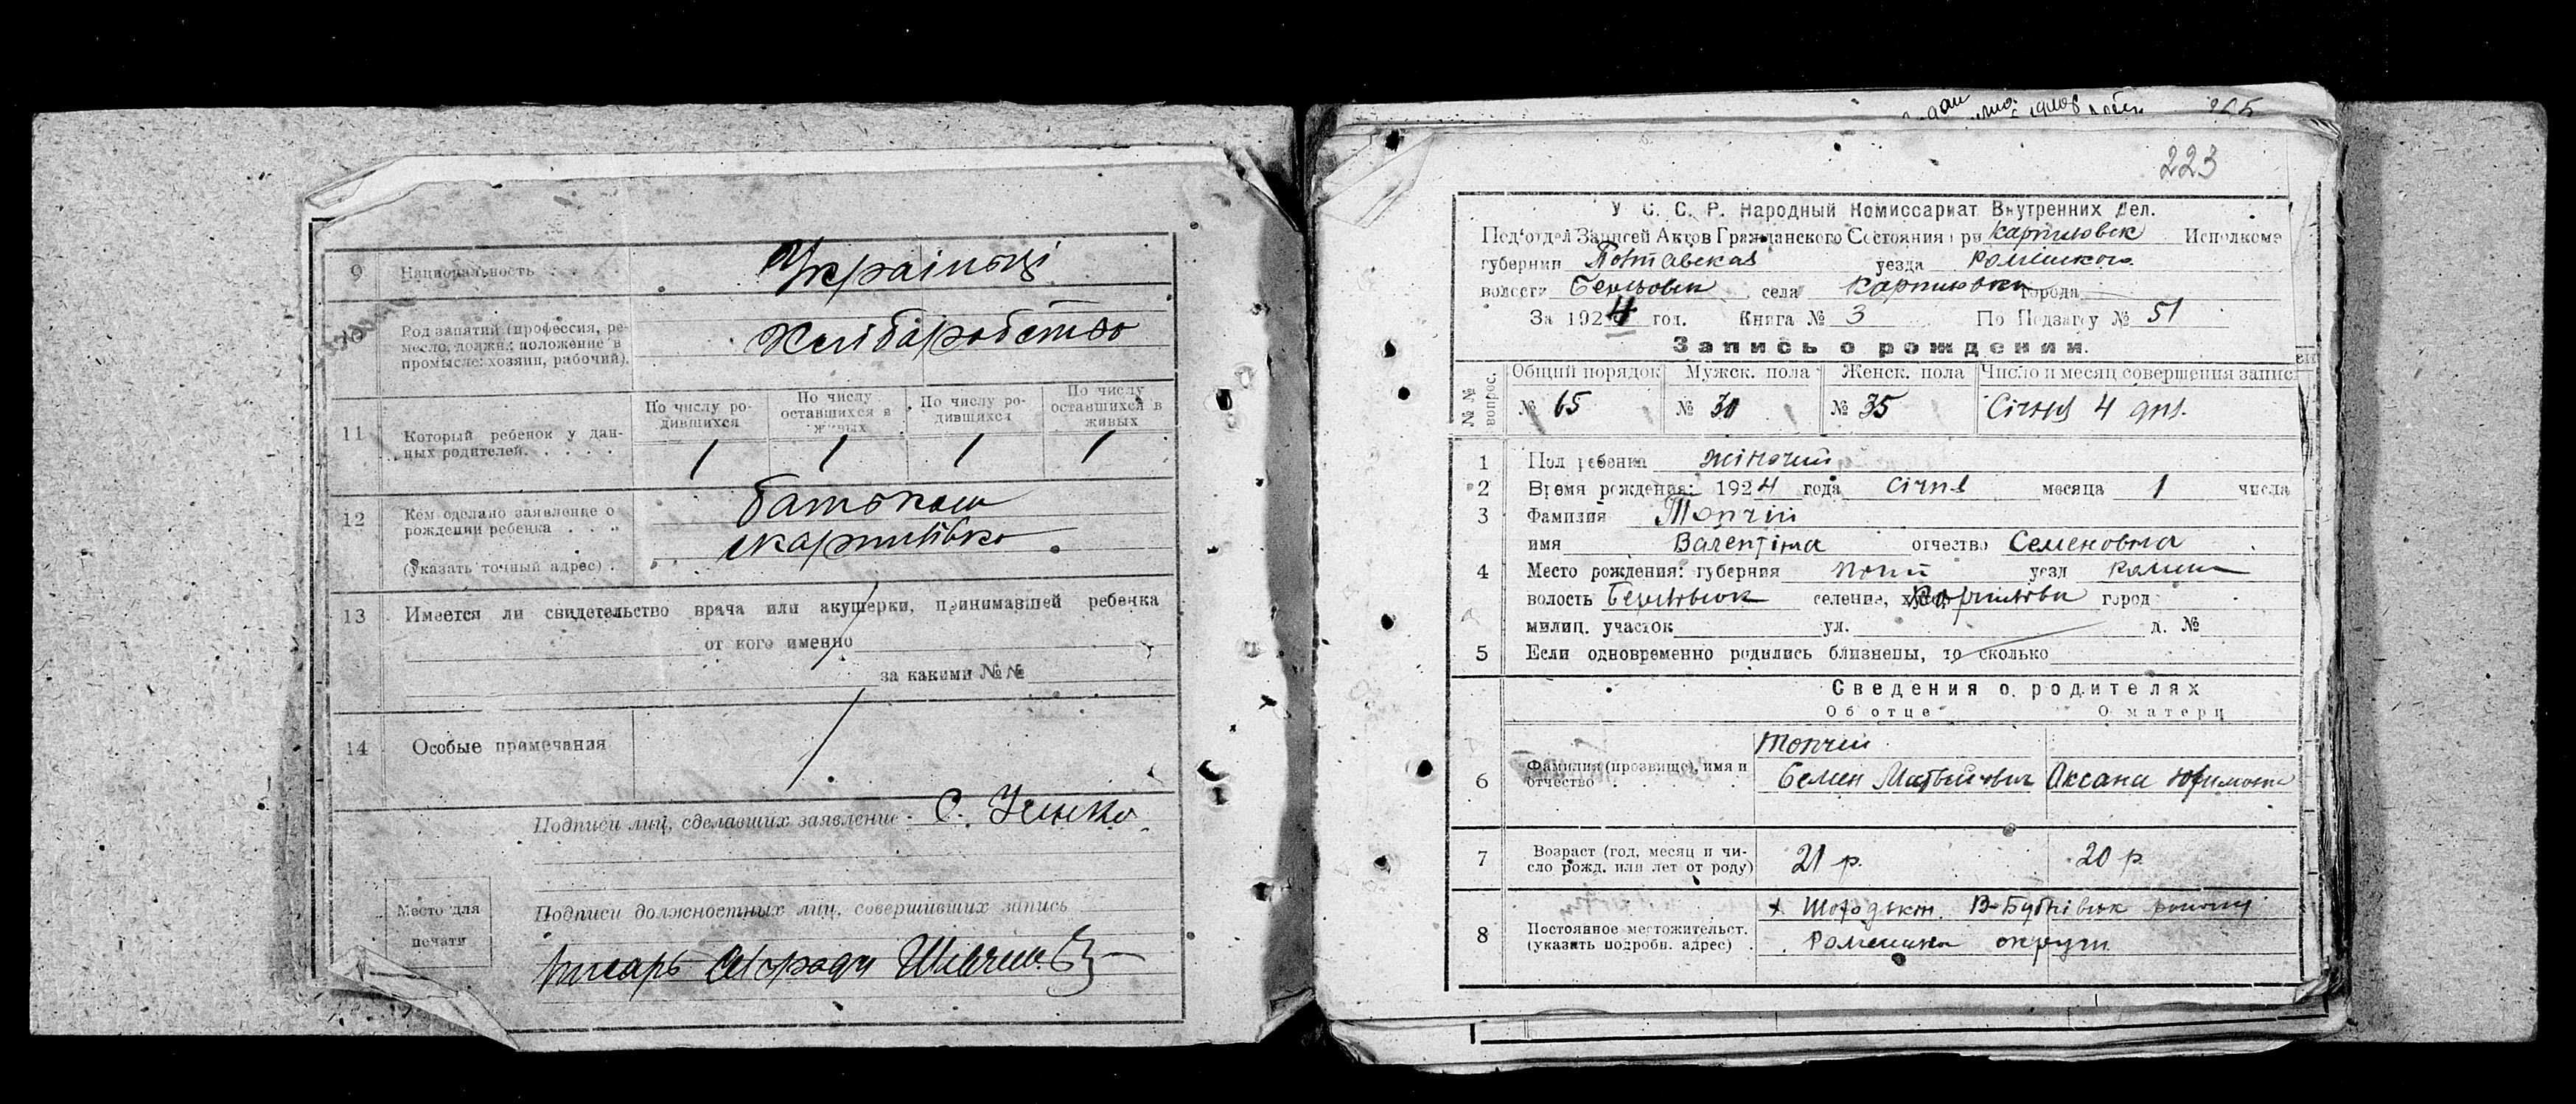 9 Национальность
Українці
Род занятий (профессия, ре-
месло, должн.: положение в
промысле: хозяин, рабочий).
Хліборобство
11 Который ребенок у дан-
ных родителей.
По числу ро-
дившихся
По числу
оставшихся в
живых
По числу ро-
дившихся
По числу
оставшихся в
живых
1 1 1 1
12 Кем сделано заявление о
рождении ребенка
(указать точный адрес).
батьком
13 Имеется ли свидетельство врача или акушерки, принимавшей ребенка
от кого именно
за какими №№
14 Особые примечания
Подписи лиц, сделавших заявление С.
Подписи должностных лиц, совершивших запись
Место для
печати
223
У. С. С. Р. Народный Комиссариат Внутренних Дел.
Под'отдел Записей Актов Гражданского Состояния при Исполкоме
губернии Полтавская уезда Роменского
волости села города
За 1924 год. Книга № 3 По Подзагсу № 51
Запись о рождении.
№№ вопрос.
Общий порядок Мужск. пола Женск. пола Число и месяц совершения записи
№ 65 № 30 № 35 Січня 4 дня.
1 Пол ребенка жіночий
2 Время рождения: 1924 года січня месяца 1 числа
3 Фамилия Топчій
имя Валентіна отчество Семеновна
4 Место рождения: губерния Полт уезд Роменск
волость селение, хутор город
милиц. участок ул. д. №
5 Если одновременно родились близнецы, то сколько
Сведения о родителях
Об отце О матери
6 Фамилия (прозвище), имя и
отчество
Топчій
Семен Матвійович Оксана
7 Возраст (год, месяц и чи-
сло рожд. или лет от роду)
21 р. 20 р.
8 Постоянное местожительст.
(указать подробн. адрес)
В-Бубнівськ району
Роменська округи